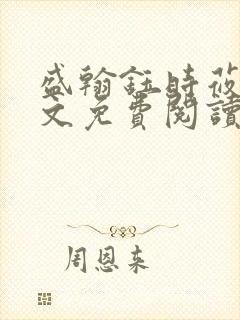 盛翰鈺時莜
文免費閱讀
周恩来